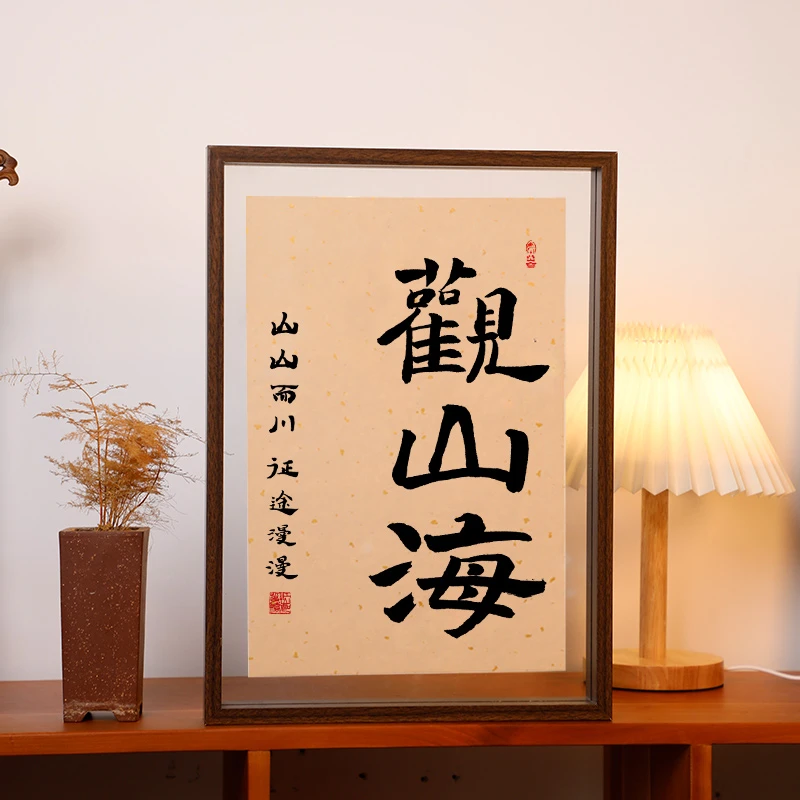 觀山海
山山而川 征途漫漫